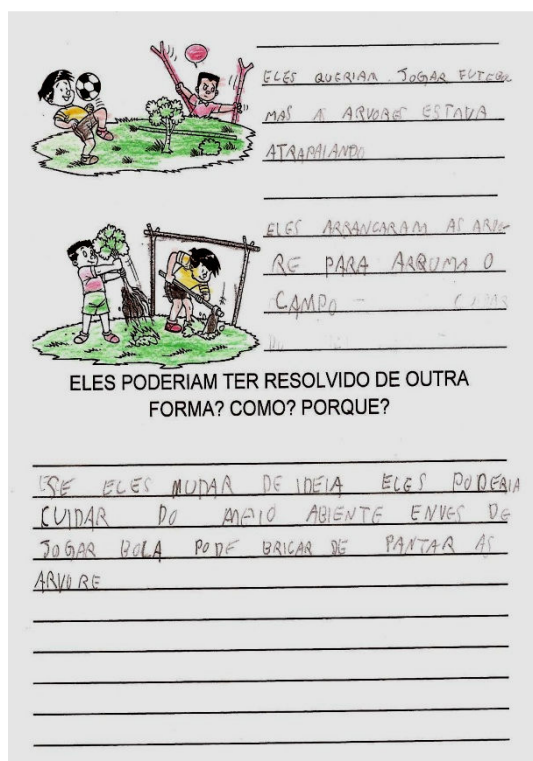 ELES QUERIAM JOGAR FUTEBO
MAS A ARVORE ESTAVA
ATRAPAIANDO
ELES ARRANCARAM AS ARVO
RE PARA ARRUMA O
CAMPO -
ELES PODERIAM TER RESOLVIDO DE OUTRA
FORMA? COMO? PORQUE?
ESE ELES MUDAR DE IDEIA ELES PODERIA
CUIDAR DO MEIO ABIENTE ENVES DE
JOGAR BOLA PODE BRICAR DE PANTAR AS
ARVORE